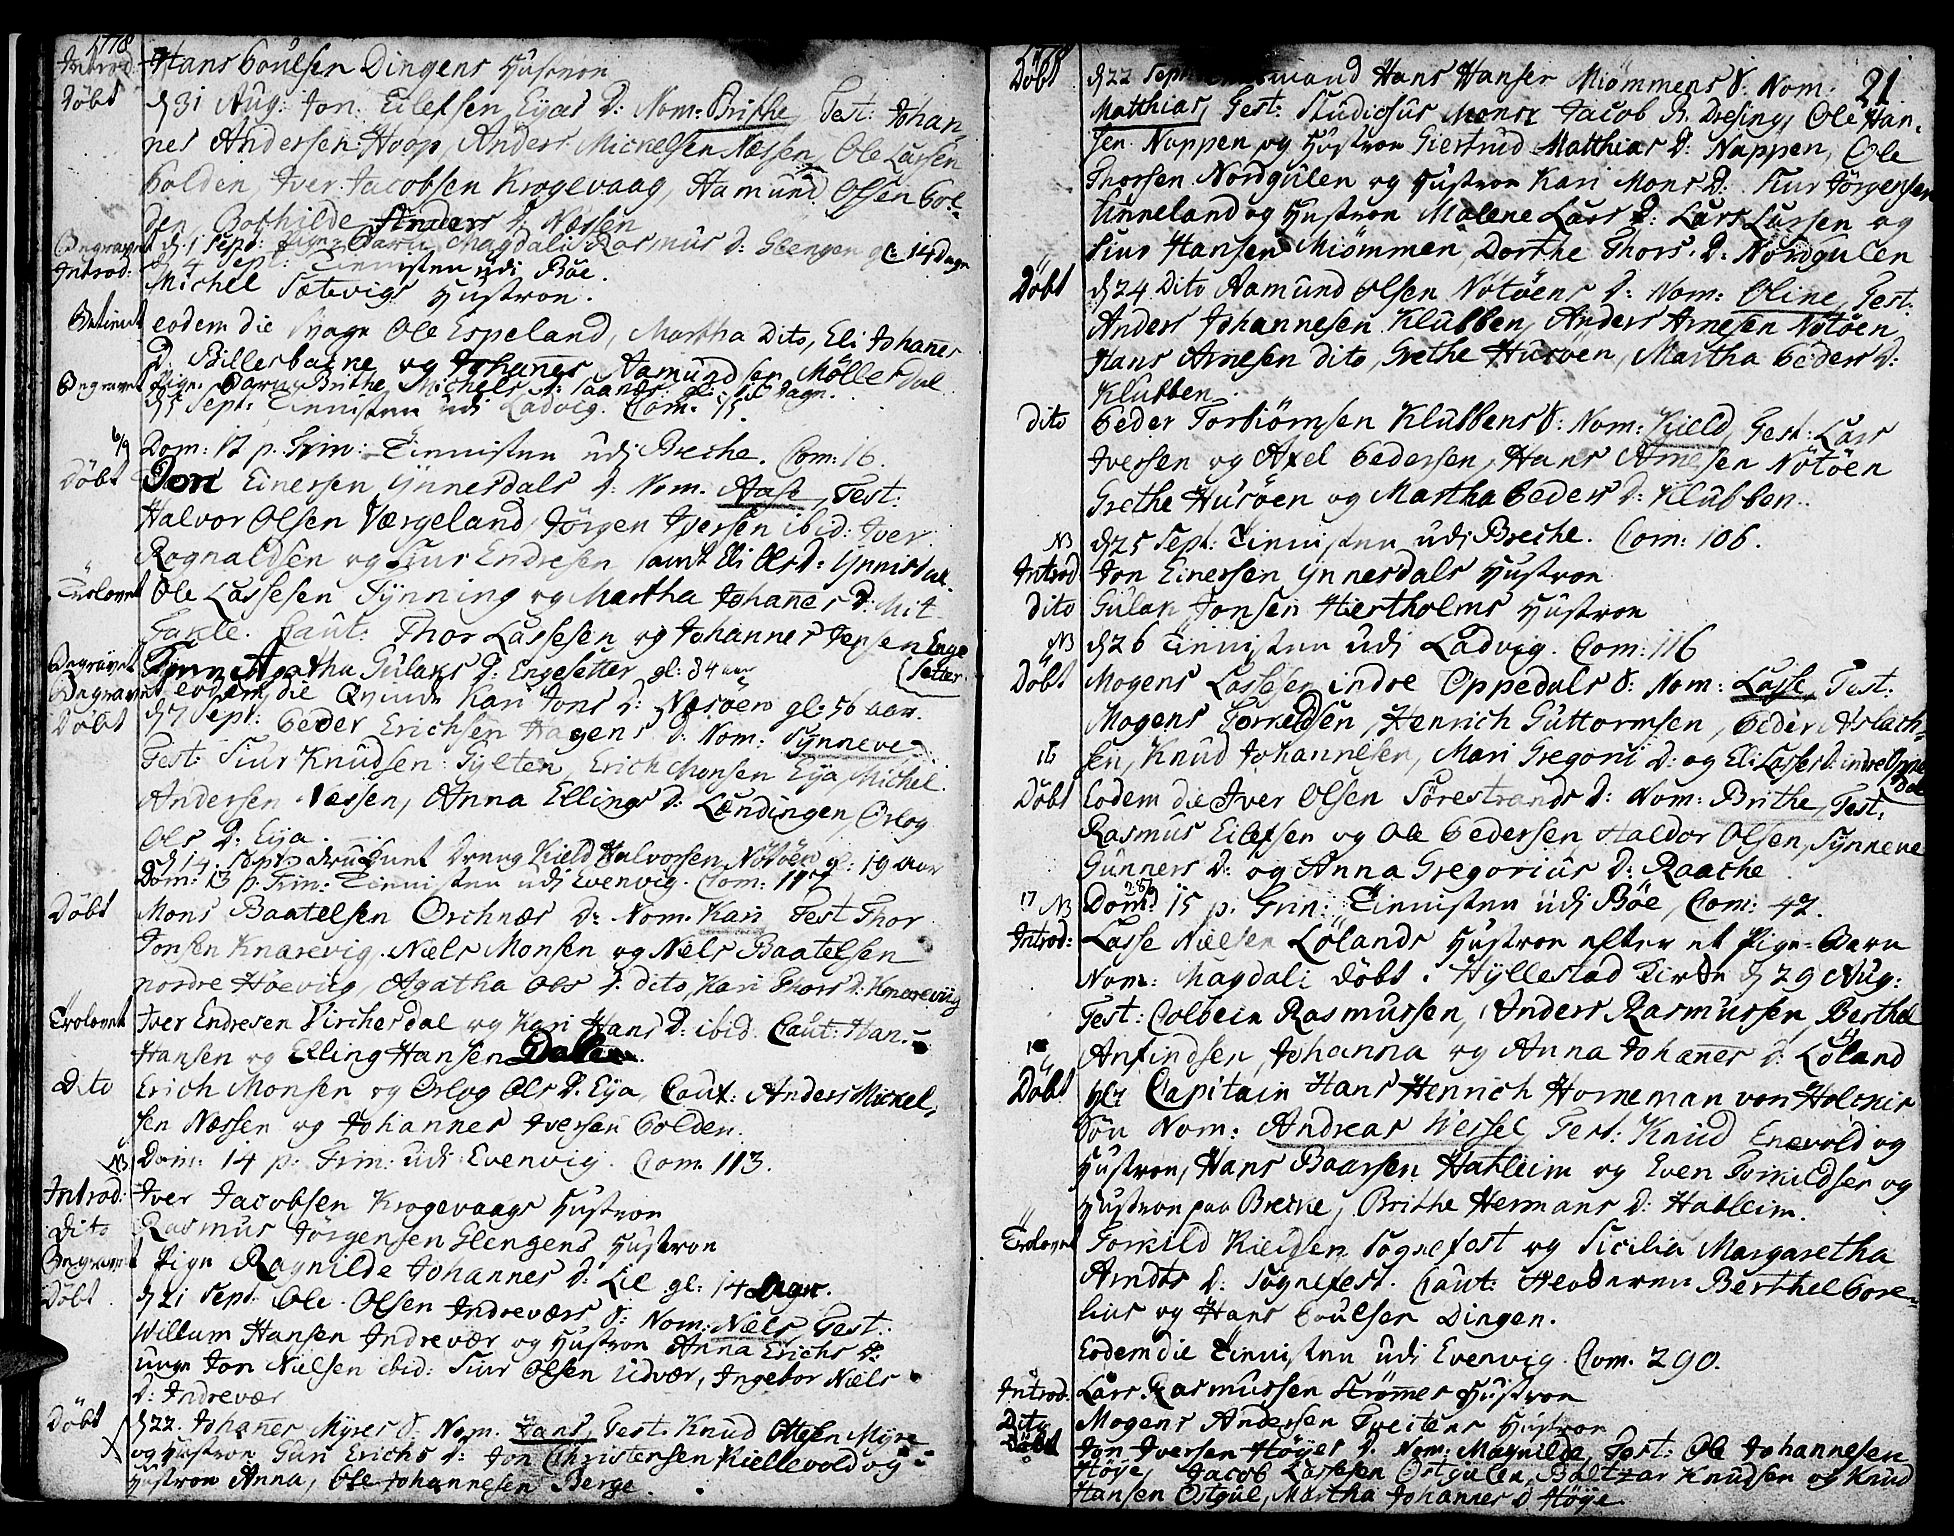 1778
Introd: Hans Poulsen Dingens Hustroe
Döbt d 31 Aug: Jon Eilefsen Eyas D: Nom: Brithe, Test: Johan-
nes Andersen Hoop, Anders Mickelsen Næssen, Ole Larsen
Polden, Iver Jacobsen Krogevaag, Aamund Olsen Pol-
den Bothilde Anders D: Næssen
Begravet d 1 Sept: Pige Barn Magdali Rasmus D: Glengen gl: 14 Dage
Introd: d 4 Sept: Tienisten udi Böe.
Michel Sætevigs Hustroe.
Betient eodem die Ole Espeland, Martha Dito, Eli Johanes
D. Billesbakne og Johanes Aamundsen Möllerdal
Begravet Pige Barn Brithe Michels D:
d 5 Sept: Tienisten udi Ladvig. Com: 15.
6/9 Dom: 12 p. Trin: Tienisten udi Breche. Com: 16.
Döbt Jon Einersen Ynnesdals D: Nom. Aase, Test:
Halvor Olsen Værgeland Jörgen Iversen ibid: Iver
Rognaldsen og Siur Endresen samt Eli Ols D: Ynnisdal.
Trolovet Ole Lassesen Tynning og Martha Johanes D: Mit
Gakle. Caut: Thor Lassesen og Johannes Jensen Enge
Begravet Agatha Gulaks D: Engesetter gl: 84 aar (setter.
Begravet eodem die Qvinde Kari Jons D: Næröen gl: 56 aar.
Döbt d 7 Sept: Peder Erichsen Hagens D: Nom: Synneve,
Test: Siur Knudsen Gylten, Erich Monsen Eya Michel
Andersen Næssen, Anna Ellings D: Lændingen, Orlog
Ols D: Eya.
d 14. Sept Kield Halvorsen Nötöen gl: 19 aar
Dom: 13 p. Trin: Tienisten udi Evenvig. Com: 117
Döbt Mons Baatelsen Orchnær D: Nom. Kari Test Thor
Jonsen Knarevig. Niels Monsen og Niels Baatelsen
nordre Höevig, Agatha Ols D: dito, Kari Thors D: Knarevig
Trolovet Iver Endresen Vircherdal og Kari Hans D: ibid. Caut: Han-
Hansen og Elling Hansen Dalen
Dito Erich Monsen og Orlog Ols D: Eya, Caut: Anders Mickel-
sen Næssen og Johannes Iversen Polden.
NB Dom: 14 p. Trin: udi Evenvig. Com 113.
Introd: Iver Jacobsen Krogevaags Hustroe
Dito Rasmus Jörgensen Glengens Hustroe
Begravet Pige Ragnilde Johannes D: Lie gl: 14 Dage.
Döbt d 21 Sept. Ole Olsen Indreværs S: Nom: Niels, Test:
Willum Hansen Indrevær og Hustroe Anna Erichs D:
unge Jon Nielsen ibid: Siur Olsen Udvær, Ingebor Niels
D: Indrevær
Döbt d 22. Johanes Myres S: Nom. Hans, Test. Knud Ottesen Myre
og Hustroe Guri Erichs D: Jon Christensen Kiellevold og
Hustroe Anna, Ole Johannesen Berge.
21
Döbt d 22 Sept Hans Hanser Miömmens S: Nom:
Matthias, Test: Studiosus Monsr Jacob R. Dresing, Ole Han-
sen Nappen og Hustroe Giertrud Matthias D: Nappen, Ole
Thorsen Nordgulen og Hustroe Kari Mons D: Siur Jörgensen
Unneland og Hustroe Malene Lars D: Lars Larsen og
Siur Hansen Miömmen, Dorthe Thors. D: Nordgulen
Döbt d 24 Dito Aamund Olsen Nötöens D: Nom: Oline, Test:
Anders Johannesen Klubben, Anders Arnesen Nötöen,
Hans Arnesen dito, Grethe Husöen, Martha Peders D:
Klubben.
dito Peder Torbiörnsen Klubbens S: Nom: Kield, Test: Lars
Iversen og Axel Pedersen, Hans Arnesen Nötöen
Grethe Husöen og Martha Peders D: Klubben.
NB d 25 Sept: Tienisten udi Breche. Com: 106.
Introd Jon Einersen Ynnesdals Hustroe
dito Gulak Jonsen Hiertholms Hustroe
NB d 26 Tienisten udi Ladvig. Com: 116
Döbt Mogens Lassesen indre Oppedals S: Nom: Lasse, Test:
Mogens Torkildsen, Henrich Guttormsen, Peder Aslach-
16 sen, Knud Johannesen, Mari Gregorii D: og Eli Lasses D: indre Oppe
dal
Döbt Eodem die Iver Olsen Sörestrands D: Nom: Brithe, Test:
Rasmus Eilefsen og Ole Pedersen Haldor Olsen, Synneve
Gunners D: og Anna Gregorius D: Raache.
17 NB Dom: 15 p. Trin: Tienisten udi Böe, Com: 47.
Introd: Lasse Nielsen Lölands Hustroe efter et Pige-Barn
Nom: Magdali döbt i Hyllestad Kirke d 29 Aug:
Test: Colbein Rasmussen, Anders Rasmussen, Berthel
Anfindsen, Johanna og Anna Johanes D: Löland
Döbt Hr Capitain Hans Henrich Horneman von Holcnis
Sön Nom: Andreas Wessel Test: Knud Enevold og
Hustroe, Hans Baarsen Hatleim og Even Tomildsen og
Hustroe paa Breche, Brithe Hermans D: Hatleim.
Trolovet Torkild Kieldsen Sognefest og Sicilia Margaretha
Arndts D: Sognefest. Caut: Berthel Bore-
lius og Hans Poulsen Dingen.
Eodem die Tienisten udi Evenvig. Com. 290.
Introd: Lars Rasmussen Strömes Hustroe
Dito Mogens Andersen Tveitens Hustroe
Döbt Jon Iversen Höyes D: Nom: Magnilde Test: Ole Johannesen
Höye, Jacob Lassesen Ostgulen, Baltzar Knudsen og Knud
Hansen Ostgul, Martha Johannes D Höye.